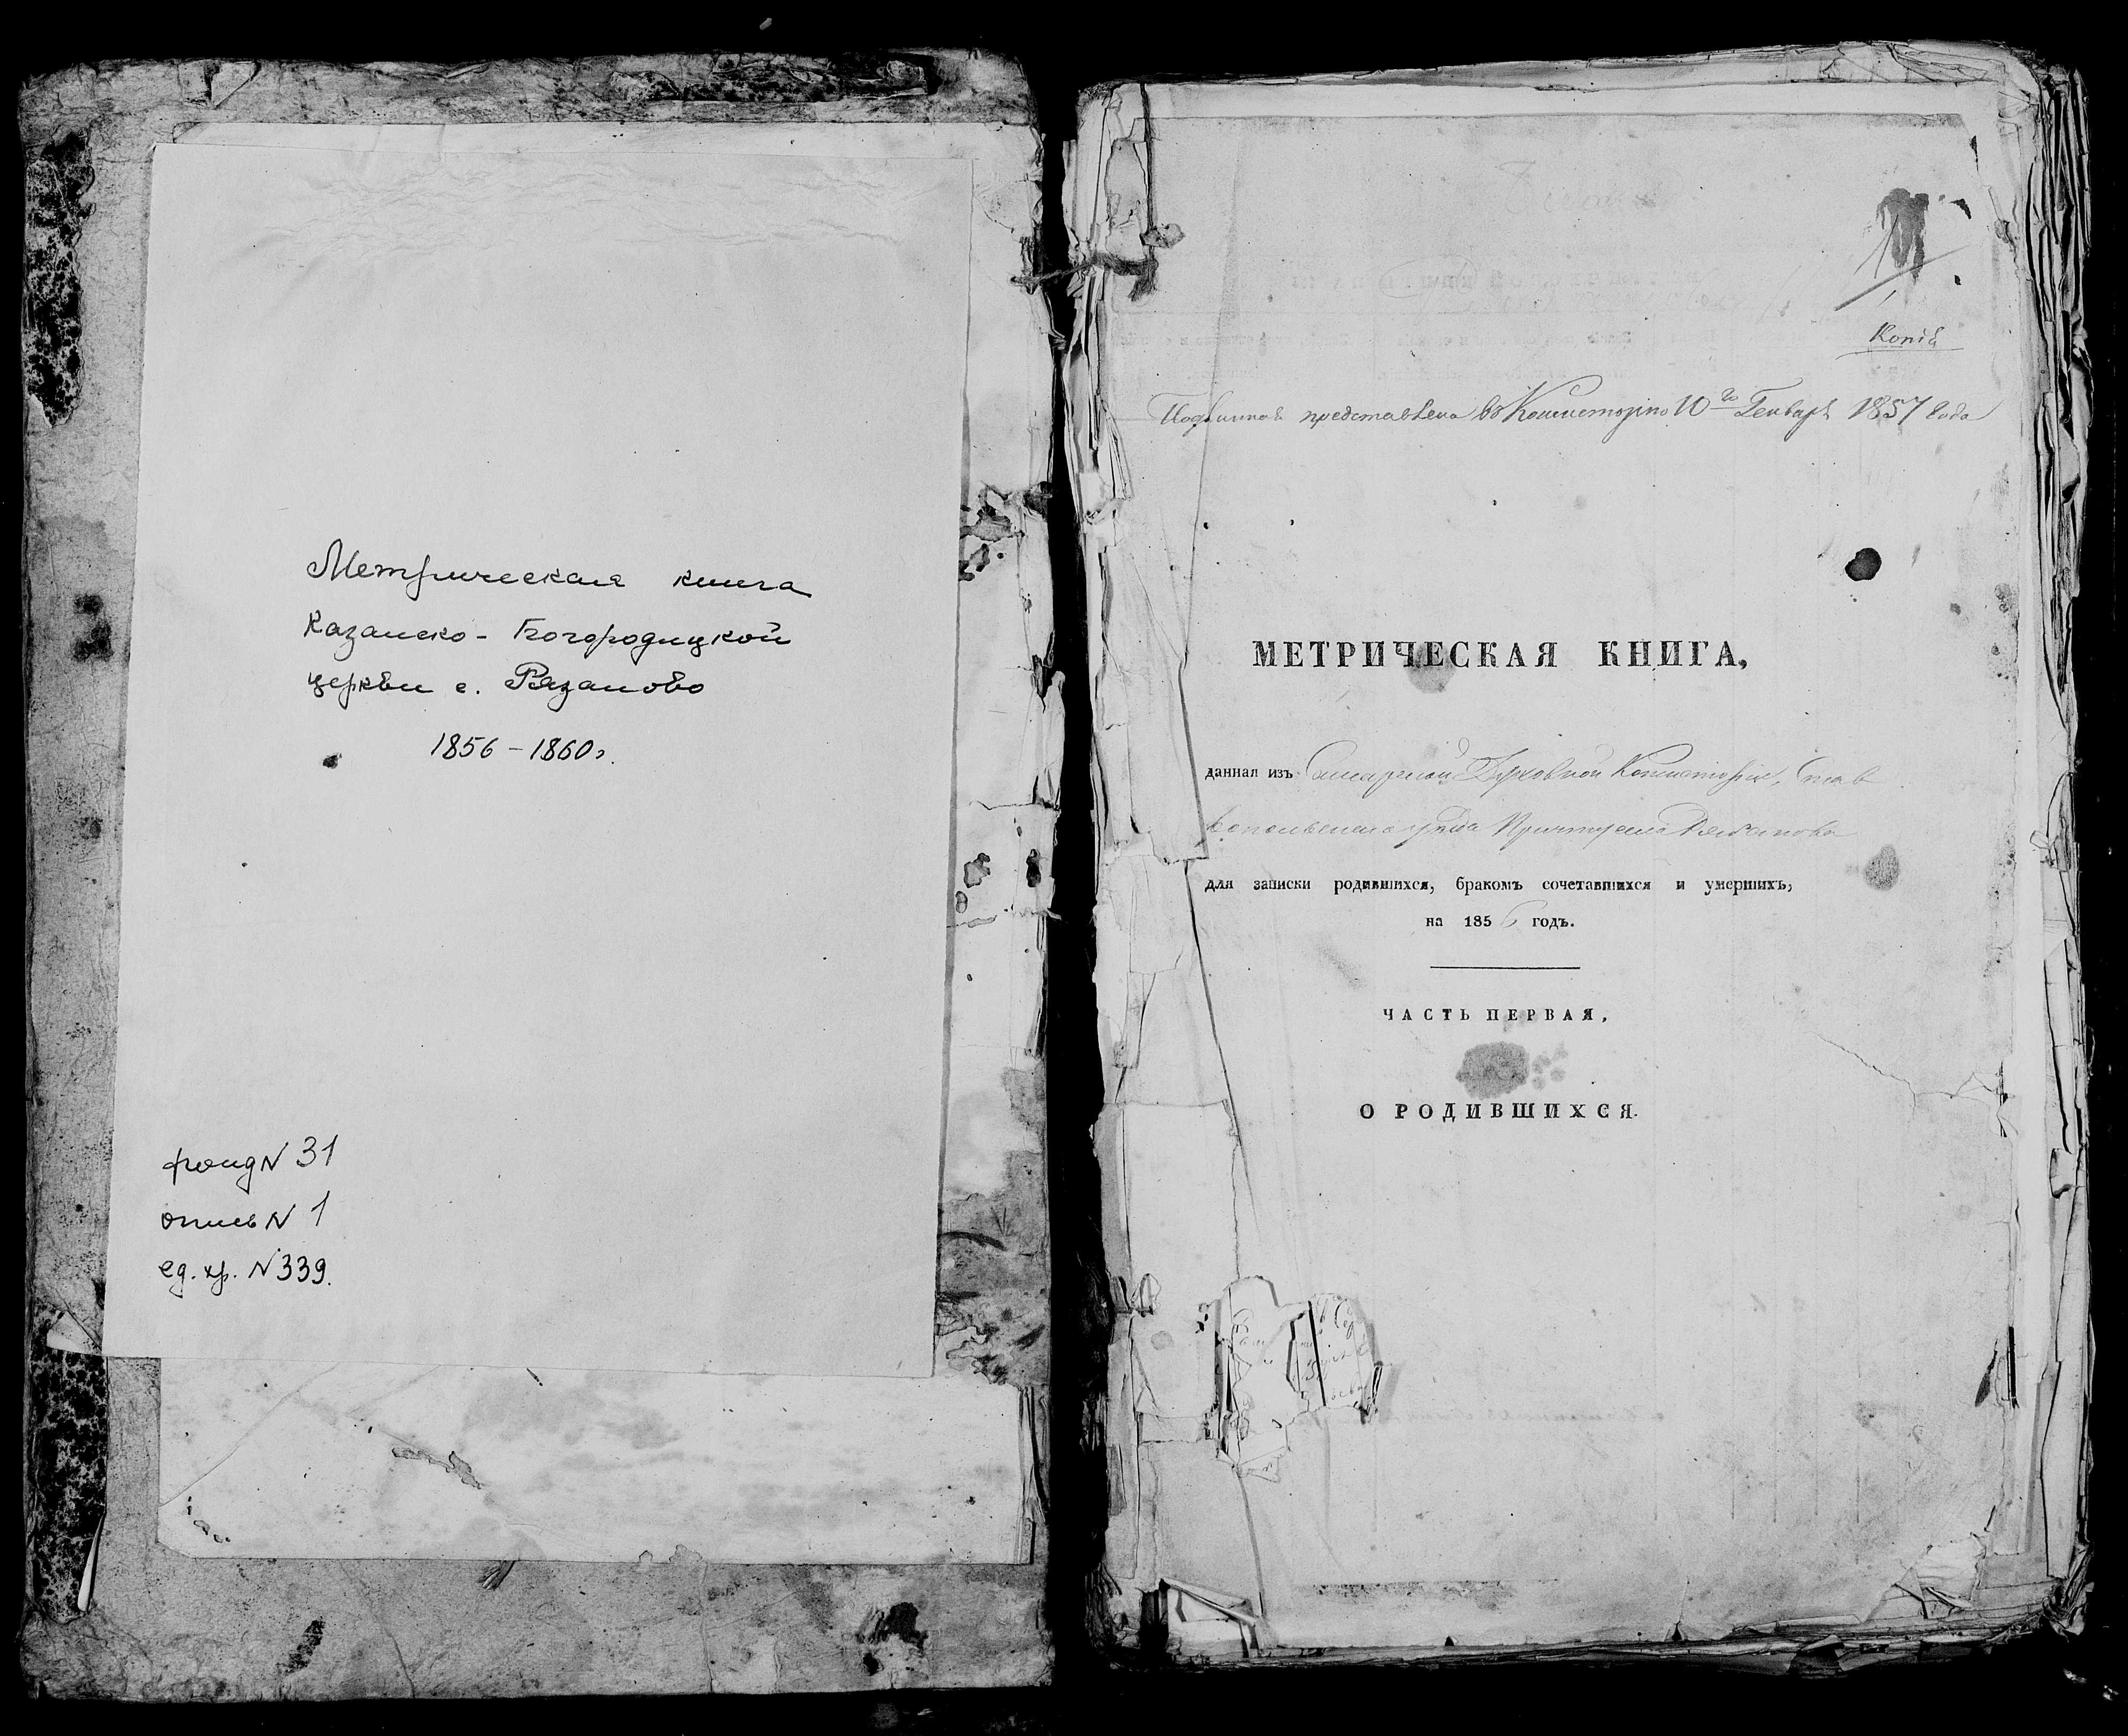 Метрическая книга
Казанско-Богородицкой
церкви с. Рязаново
1856-1860г.
фонд N 31
опись N 1
ед. хр. N 339.
Копія
представлена въ Консисторію 10го Генваря 1857 года
МЕТРИЧЕСКАЯ КНИГА,
данная изъ Самарской Духовной Консисторіи, Став
уезда Рязанова
для записки родившихся, бракомъ сочетавшихся и умершихъ,
на 1856 годъ.
ЧАСТЬ ПЕРВАЯ,
О РОДИВШИХСЯ.